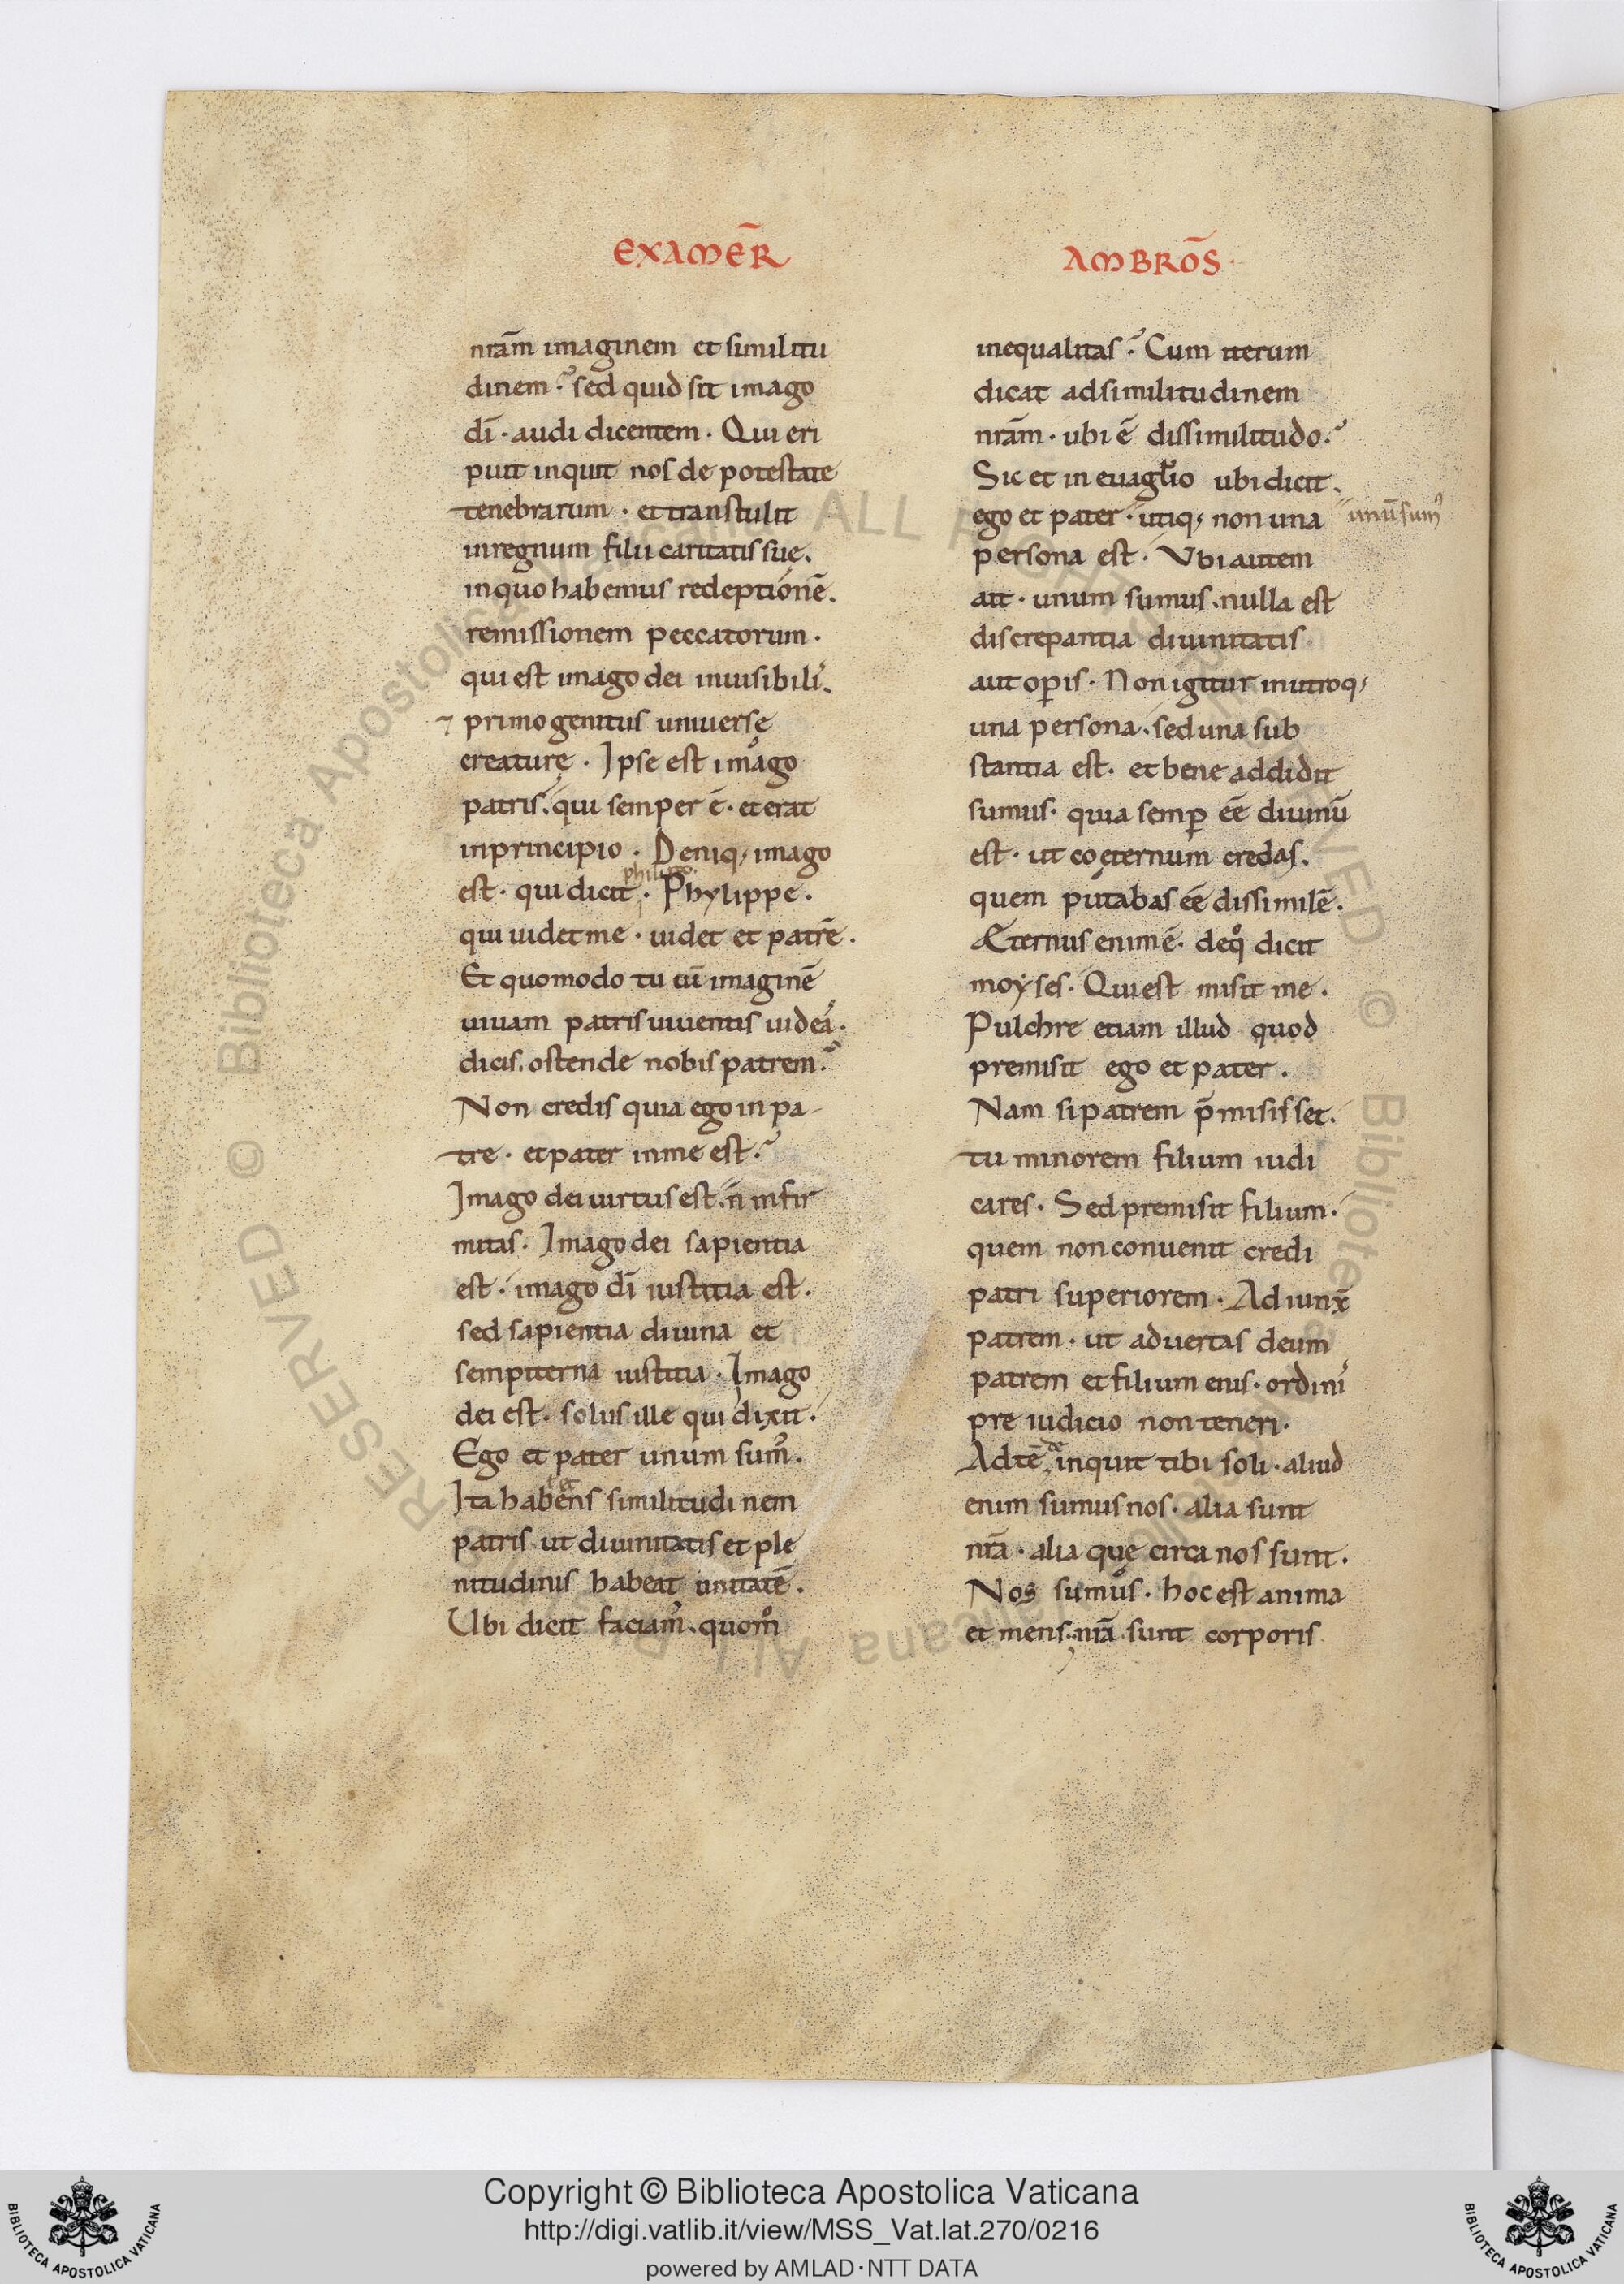 EXAMER̄
nrām imaginem et similitu
dinem. sed quid sit imago
dī · audi dicentem · Qui eri
puit inquit nos de potestate
tenebrarum · et transtulit
in regnum filii caritatis suę.
in quo habemus redeptionē.
remissionem peccatorum ·
qui est imago dei inuisibili᾽.
⁊ primogenitus uniuersę
creaturę · Ipse est imago
patris. qui semper ē · et erat
in principio · Deniq; imago
philippo.
est · qui dicit · Phylippe ·
qui uidet me · uidet et patrē ·
Et quomodo tu cū imaginē
uiuam patris uiuentis uidea᾽.
dicis. ostende nobis patrem.
Non credis quia ego in pa-
tre · et pater in me est.
Imago dei uirtus est. n̄ infir
mitas · Imago dei sapientia
est. imago dī iustitia est.
sed sapientia diuina et
sempiterna iustitia · Imago
dei est · solus ille qui dixit.
Ego et pater unum sum᾽.
Ita habens similitudinem
patris ut diuinitatis et ple
nitudinis habeat unitatē.
Ubi dicit faciam᾽. quom̊
AMBRŌS
inequalitas. Cum iterum
dicat ad similitudinem
nrām · ubi ē dissimilitudo.
Sic et in euaglīo ubi dicit.
ego et pater · utiq; non una
unū sum᾽
persona est. Vbi autem
ait · unum sumus. nulla est
discrepantia diuinitatis
aut op̄is · Non igitur in utroq;
una persona. sed una sub
stantia est. et bene addidit
sumus. quia semp̄ eē diuinū
est · ut coęternum credas.
quem putabas eē dissimilē.
Æternus enim ē · de q̊ dicit
moyses · Qui est misit me ·
Pulchre etiam illud quod
premisit ego et pater ·
Nam si patrem p̄misisset.
tu minorem filium iudi
cares · Sed premisit filium.
quem non conuenit credi
patri superiorem · Adiunx̄
patrem · ut aduertas deum
patrem et filium eius · ordini᾽
pre iudicio non teneri.
Ad tē inquit tibi soli · aliud
enim sumus nos · alia sunt
nrā · alia quę circa nos sunt.
Nos sumus · hoc est anima
et mens. nrā sunt corporis
Copyright © Biblioteca Apostolica Vaticana
http://digi.vatlib.it/view/MSS_Vat.lat.270/0216
powered by AMLAD·NTT DATA
BIBLIOTECA APOSTOLICA VATICANA
BIBLIOTECA APOSTOLICA VATICANA